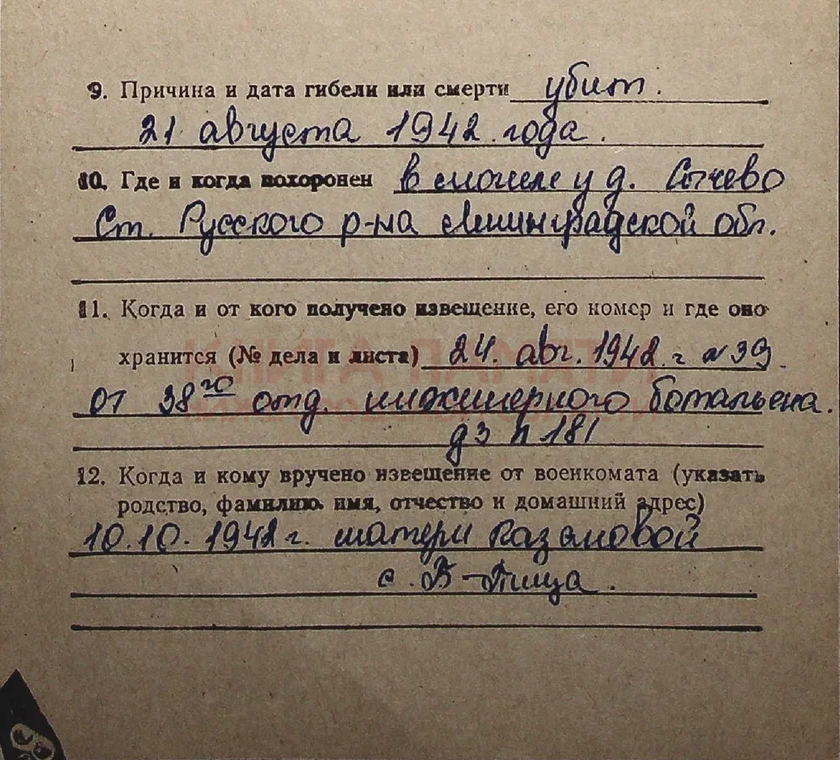 9. Причина и дата гибели или смерти убит.
21 августа 1942 года.
10. Где и когда похоронен в могиле у д. Сычево
Ст. Русского р-на Ленинградской обл.
11. Когда и от кого получено извещение, его номер и где оно
хранится (№ дела и листа) 24. авг. 1942 г №39
от 38го отд. инженерного батальена.
д3 л 181
12. Когда и кому вручено извещение от военкомата (указать
родство, фамилию, имя, отчество и домашний адрес)
10.10. 1942 г. матери
с.
КНИГА ПАМЯТИ